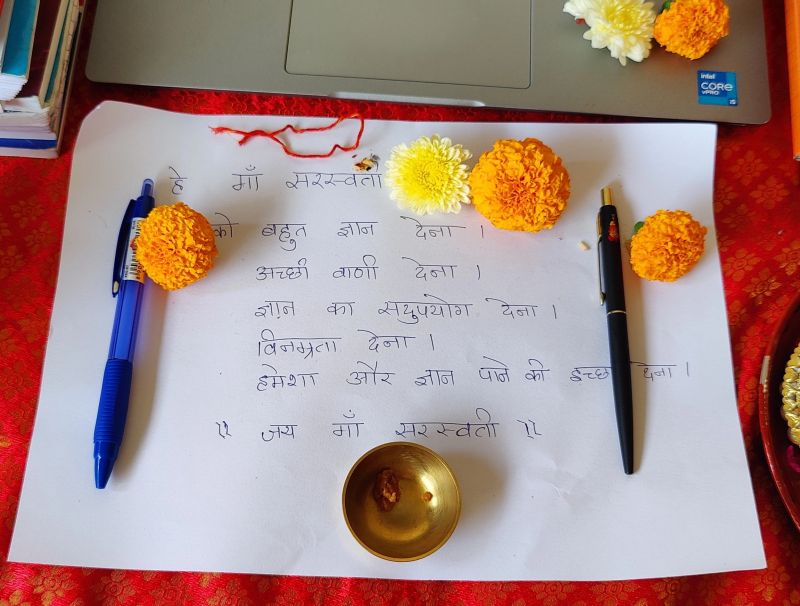 intel
CORE
vPRO i5
हे माँ सरस्वती
को बहुत ज्ञान देना ।
अच्छी वाणी देना ।
ज्ञान का सदुपयोग देना ।
विनम्रता देना ।
हमेशा और ज्ञान पाने की इच्छा देना ।
॥ जय माँ सरस्वती ॥